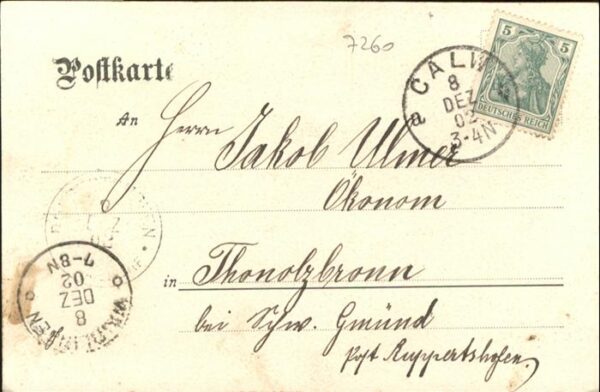 7260
Postkarte
5 5
DEUTSCHES REICH
CALW
8
DEZ
02
3-4N
a
An Herrn Jakob Ulmer
Ökonom
in Thonolzbronn
bei Schw. Gmünd
Post Ruppertshofen.
8
DEZ
02
7-8N